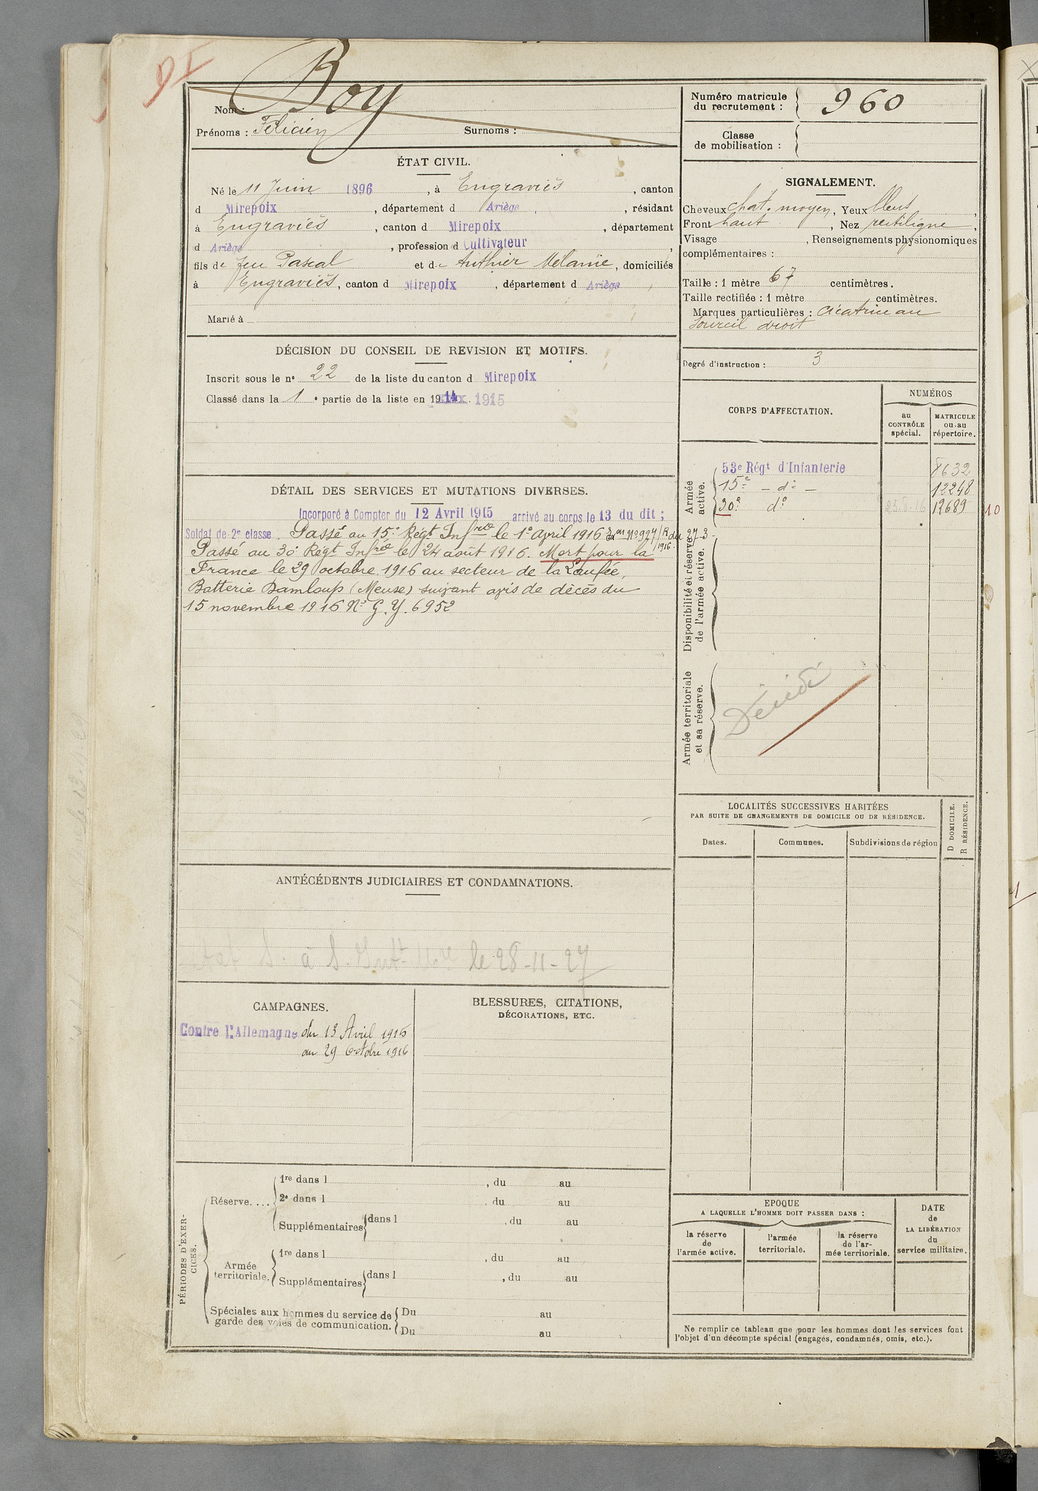 Boy
Nom :
Prénoms : Félicien Surnoms :
Numéro matricule du recrutement : 960
Classe de mobilisation :
ÉTAT CIVIL.
Né le 11 Juin 1896, à Engraviès, canton
d Mirepoix, département d Ariège, résidant
à Engraviès, canton d Mirepoix, département
d Ariège, profession d Cultivateur
fils de feu Pascal et de Authier Mélanie, domiciliés
à Engraviès, canton d Mirepoix, département d Ariège
Marié à
SIGNALEMENT.
Cheveux chat. moyen, Yeux bleus,
Front haut, Nez rectiligne,
Visage , Renseignements physionomiques
complémentaires :
Taille : 1 mètre 67 centimètres.
Taille rectifiée : 1 mètre centimètres.
Marques particulières : cicatrice au
sourcil droit
Degré d'instruction : 3
DÉCISION DU CONSEIL DE REVISION ET MOTIFS.
Inscrit sous le n° 22 de la liste du canton d Mirepoix
Classé dans la 1e partie de la liste en 1915
DÉTAIL DES SERVICES ET MUTATIONS DIVERSES.
Incorporé à Compter du 12 Avril 1915 arrivé au corps le 13 du dit ;
Soldat de 2e classe. Passé au 15e Régt Infrie le 1er April 1916
Passé au 30e Régt Infrie le 24 août 1916. Mort pour la
France le 29 octobre 1916 au secteur de la Laufée,
Batterie Damloup (Meuse) suivant avis de décès du
15 novembre 1916 No G. Y. 6952
CORPS D'AFFECTATION.
NUMÉROS
au CONTRÔLE spécial.
MATRICULE ou au répertoire.
Armée active.
53e Régt d'Infanterie 8632
15e - do - 12248
30e do 12689
10
Disponibilité et réserve de l'armée active.
Armée territoriale et sa réserve.
Décédé
LOCALITÉS SUCCESSIVES HABITÉES
PAR SUITE DE CHANGEMENTS DE DOMICILE OU DE RÉSIDENCE.
Dates. Communes. Subdivisions de région
D DOMICILE. R RÉSIDENCE.
ANTÉCÉDENTS JUDICIAIRES ET CONDAMNATIONS.
le 28-11-27
CAMPAGNES.
Contre l'Allemagne du 13 Avril 1916
au 29 Octobre 1916
BLESSURES, CITATIONS,
DÉCORATIONS, ETC.
PÉRIODES D'EXERCICES.
Réserve....
1re dans l , du au
2e dans l , du au
Supplémentaires dans l , du au
Armée territoriale.
1re dans l , du au
Supplémentaires dans l , du au
Spéciales aux hommes du service de garde des voies de communication.
Du au
Du au
EPOQUE
A LAQUELLE L'HOMME DOIT PASSER DANS :
la réserve de l'armée active.
l'armée territoriale.
la réserve de l'armée territoriale.
DATE de LA LIBÉRATION du service militaire.
Ne remplir ce tableau que pour les hommes dont les services font
l'objet d'un décompte spécial (engagés, condamnés, omis, etc.).